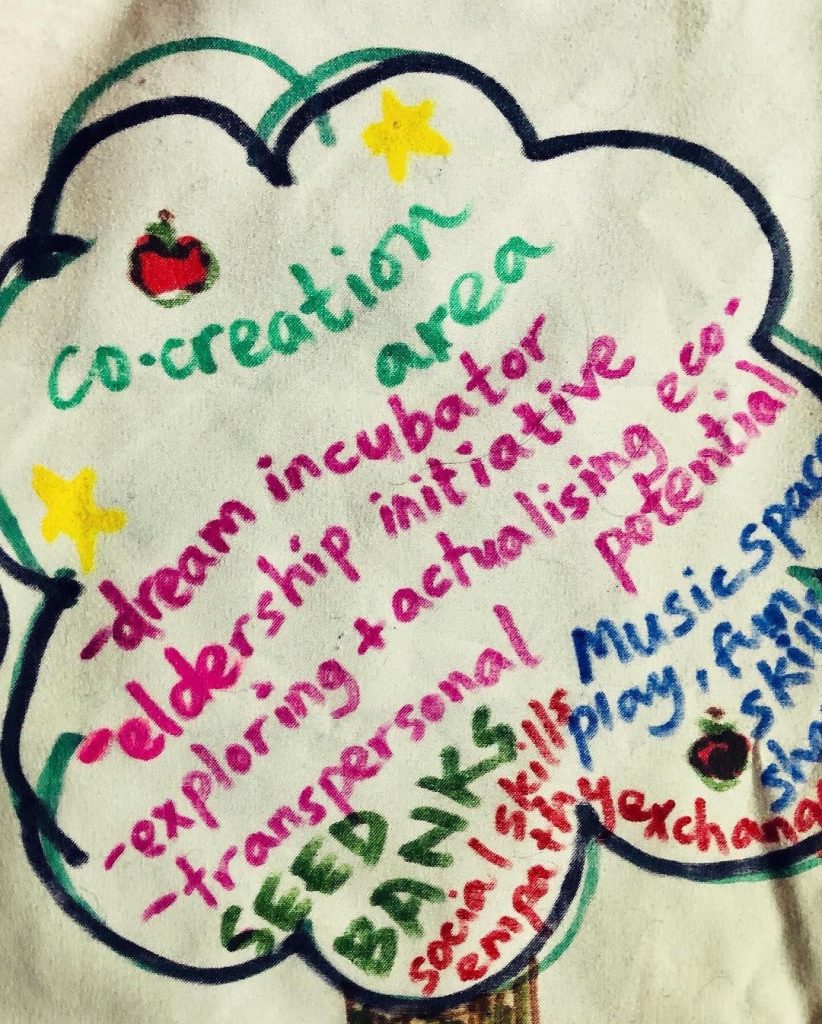 co-creation
area
-dream incubator
-eldership initiative
-exploring + actualising eco-
-transpersonal potential
SEED
BANKS
social skills
empathy exchang
Music. Space
play, fun,
skill
sha